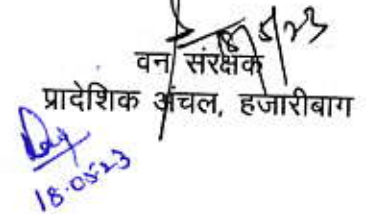 18/5/23
वन संरक्षक
प्रादेशिक अंचल, हजारीबाग
18.05.23